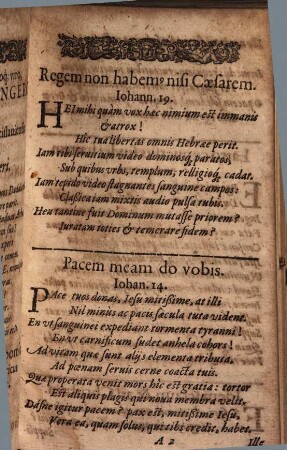 Regem non habemꝰ nisi Cæsarem.
Iohann. 19.
HEI mihi quàm vox hæc nimium est immanis
& atrox!
Hic tua libertas omnis Hebræe perit.
Iam tibi seruitium video dominosq́; paratos,
Sub quibus vrbs, templum, relligioq́; cadat.
Iam tepido video stagnantes sanguine campos:
Classica iam mixtis audio pulsa tubis.
Heu tantine fuit Dominum mutasse priorem?
Iuratam toties & temerare fidem?
Pacem meam do vobis.
Iohan. 14.
PAce tuos donas, Iesu mitissime, at illi
Nil minus ac pacis sæcula tuta vident.
En vt sanguinei expediant tormenta tyranni!
En vt carnificum sudet anhela cohors!
Ad vitam quæ sunt alijs elementa tributa.
Ad pœnam seruis cerne coacta tuis.
Qua properata venit mors hic est gratia: tortor
Est aliquis plagis qui noua membra velit.
Dasne igitur pacem? pax est, mitissime Iesu,
Vera ea, quam solus, qui tibi credit, habet.
A 2 Ille